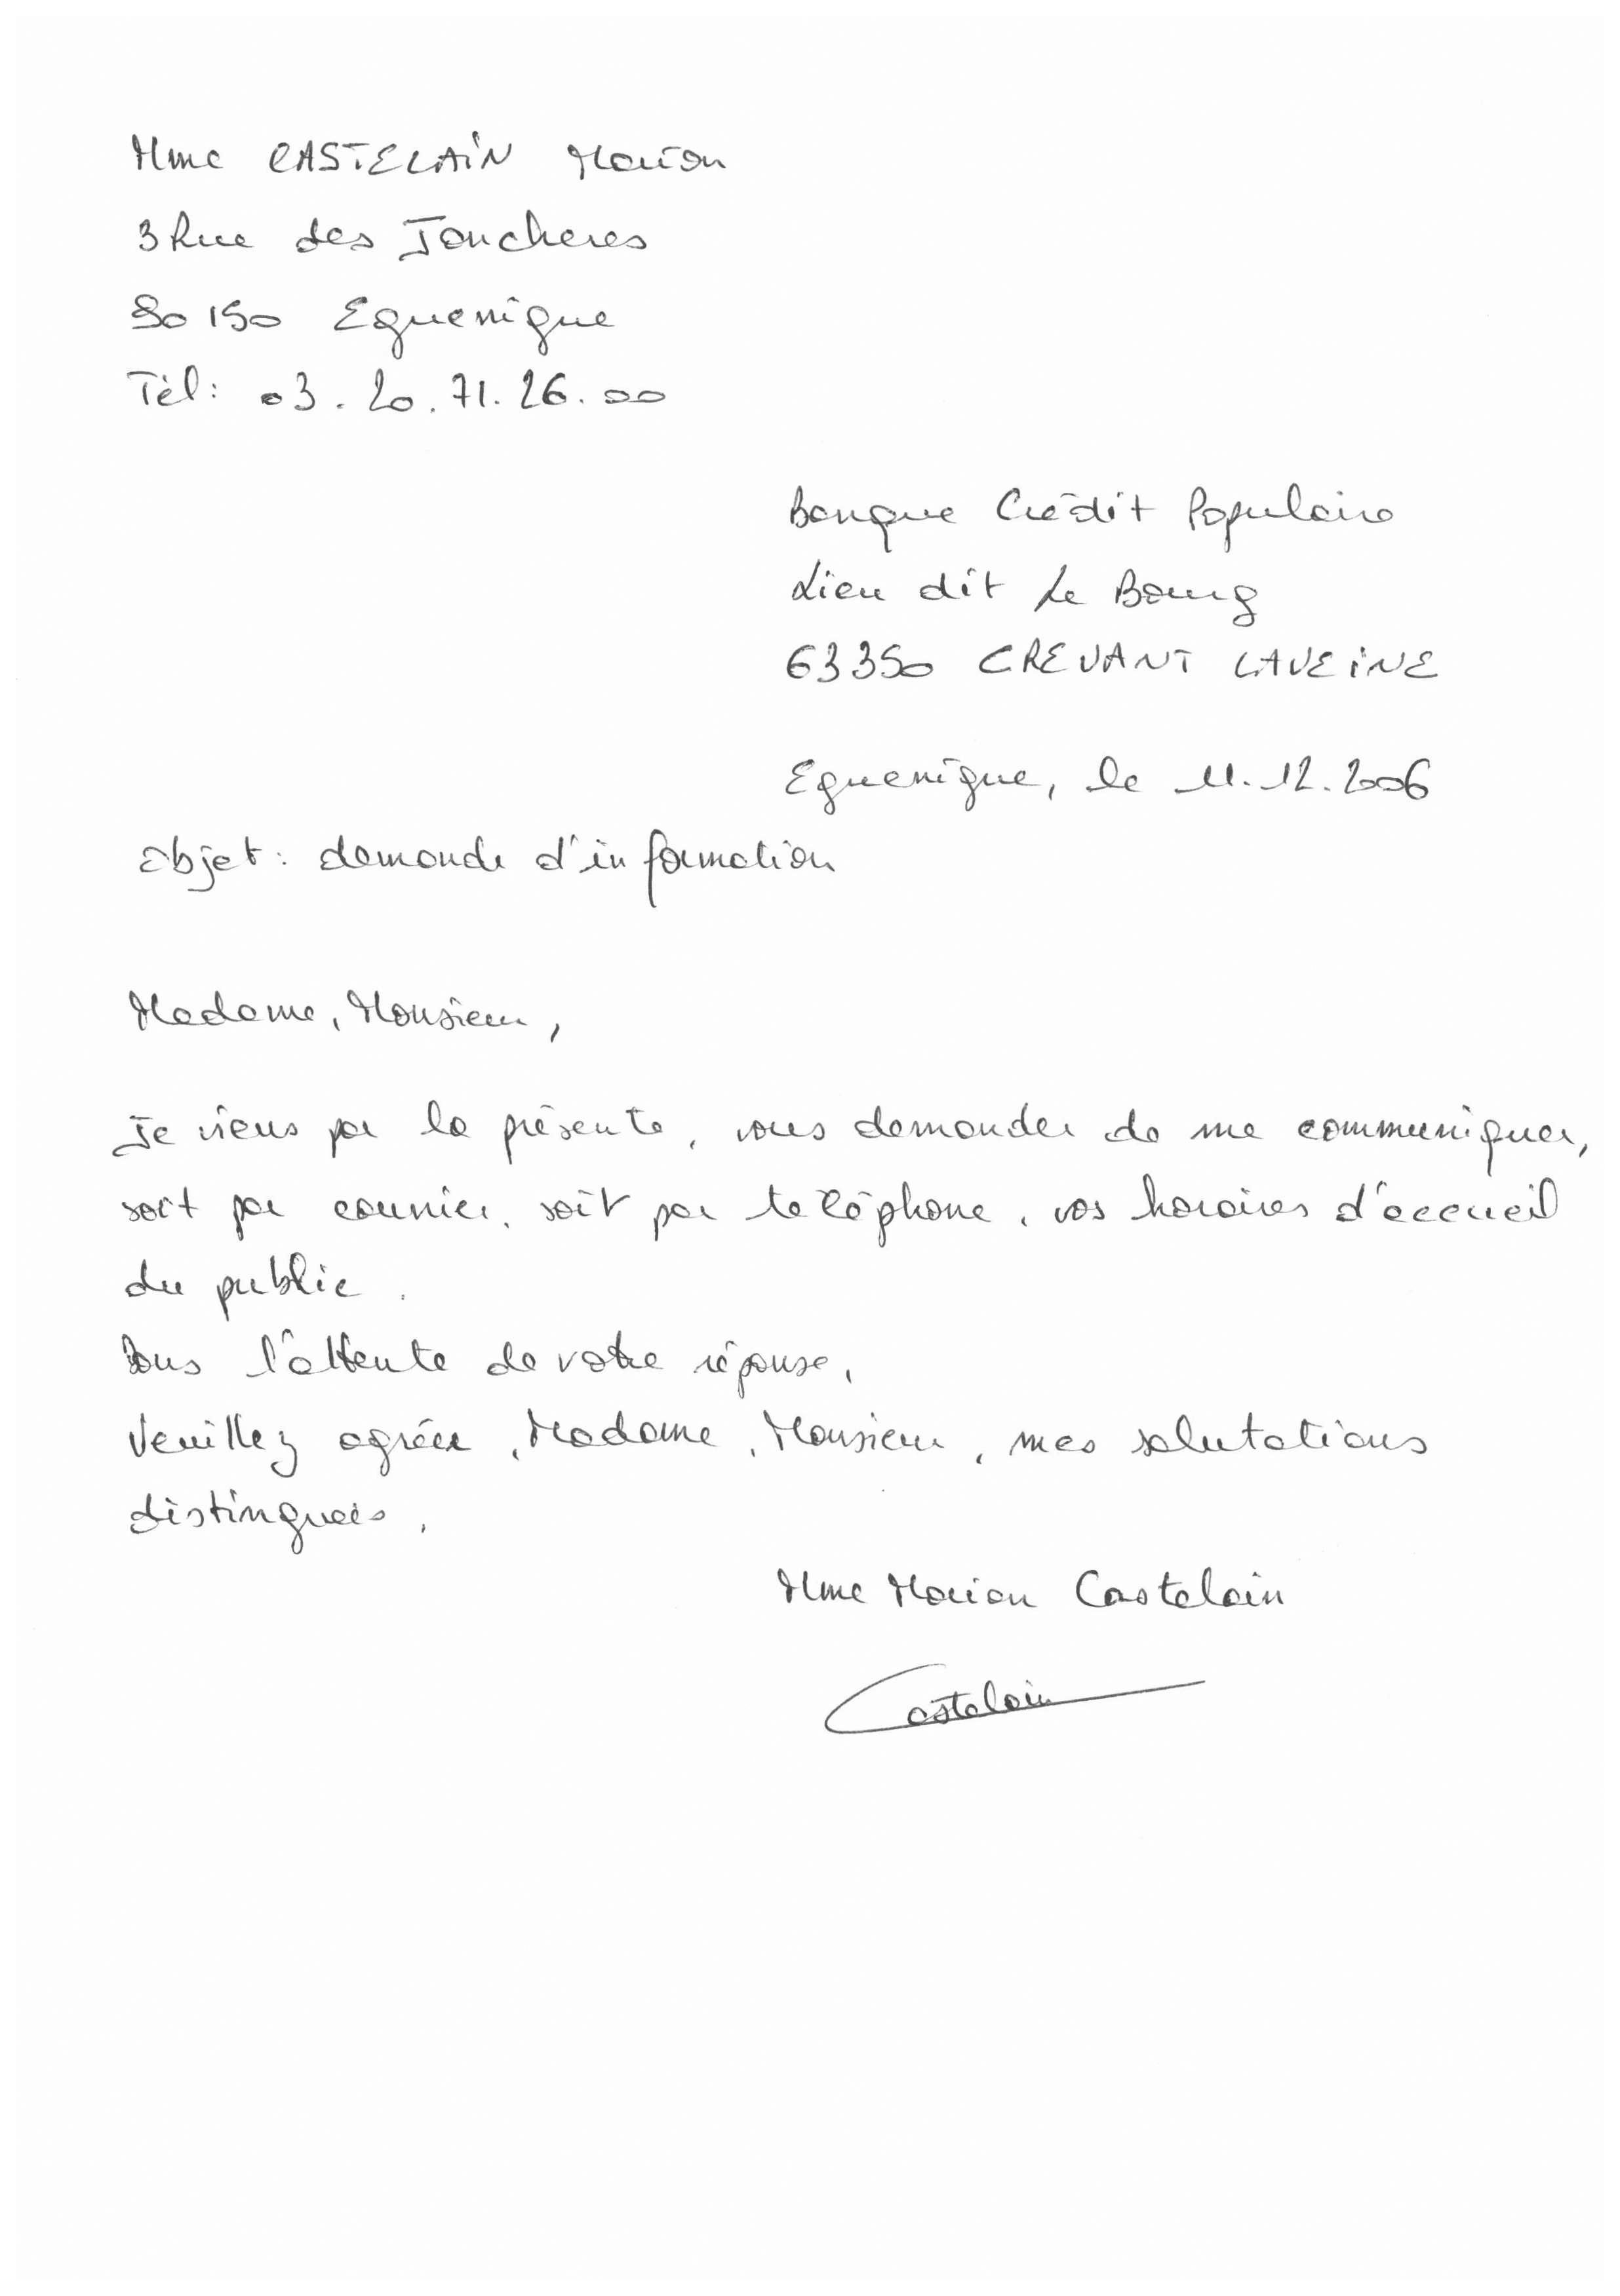 Mme CASTELAIN Marion
3 Rue des Joncheres
90150 Eguenigue
Tél: 03.20.71.26.00
Banque Crédit Populaire
Lieu dit Le Bourg
63350 CREVANT LAVEINE
Eguenigue, le 11.12.2006
Objet: demande d'information
Madame, Monsieur,
Je viens par la présente, vous demander de me communiquer,
soit par courrier, soit par téléphone, vos horaires d'accueil
du public.
Dans l'attente de votre réponse,
Veuillez agréer, Madame, Monsieur, mes salutations
distinguées.
Mme Marion Castelain
Castelain